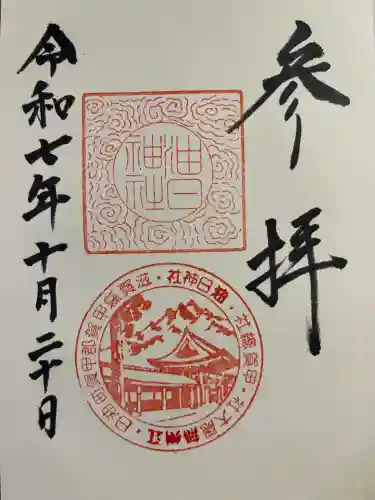 参拝
油日神社
油日神社・滋賀県甲賀郡甲賀町油日・江州
令和七年十月二十日